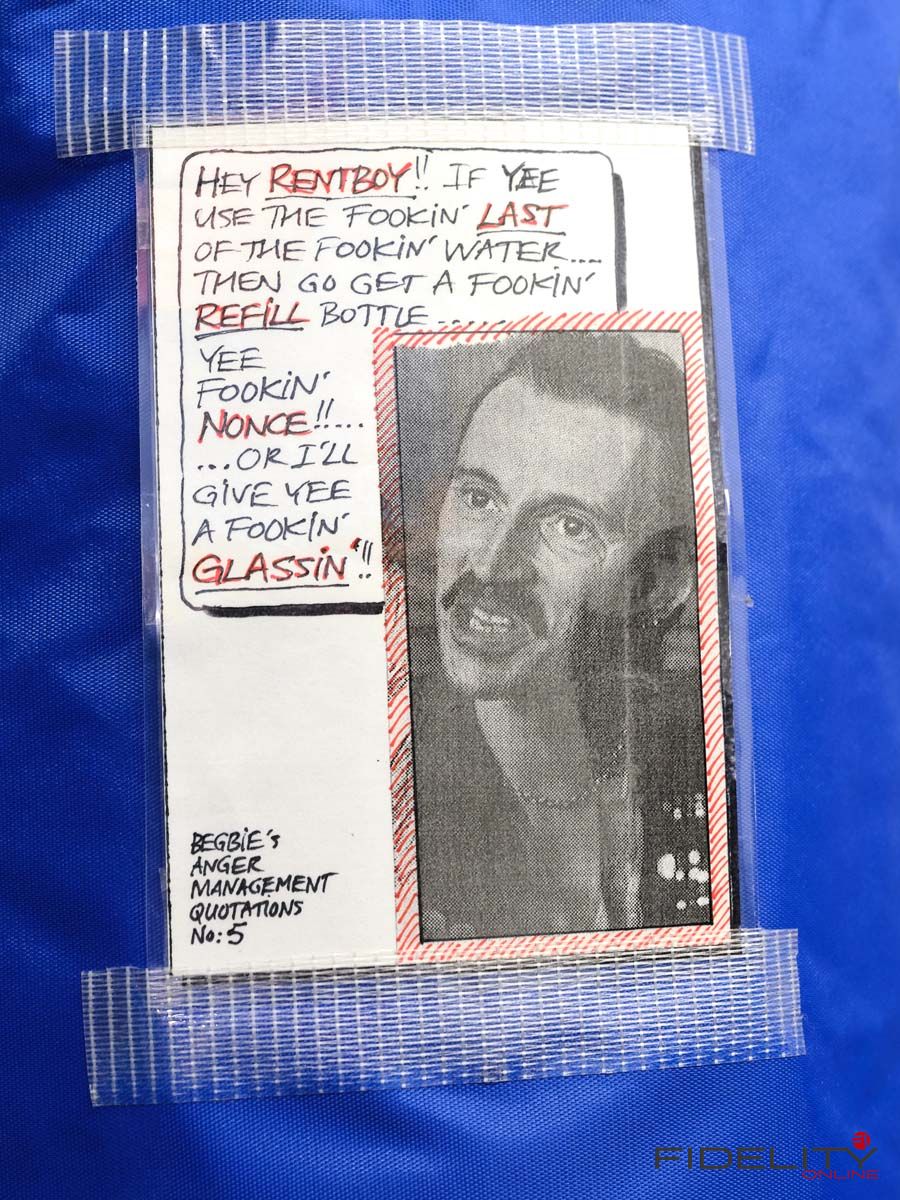 HEY RENTBOY!! IF YEE
USE THE FOOKIN' LAST
OF THE FOOKIN' WATER....
THEN GO GET A FOOKIN'
REFILL BOTTLE......
YEE
FOOKIN'
NONCE!!....
...OR I'LL
GIVE YEE
A FOOKIN'
GLASSIN'!!
BEGBIE'S
ANGER
MANAGEMENT
QUOTATIONS
No: 5
FIDELITY
ONLINE